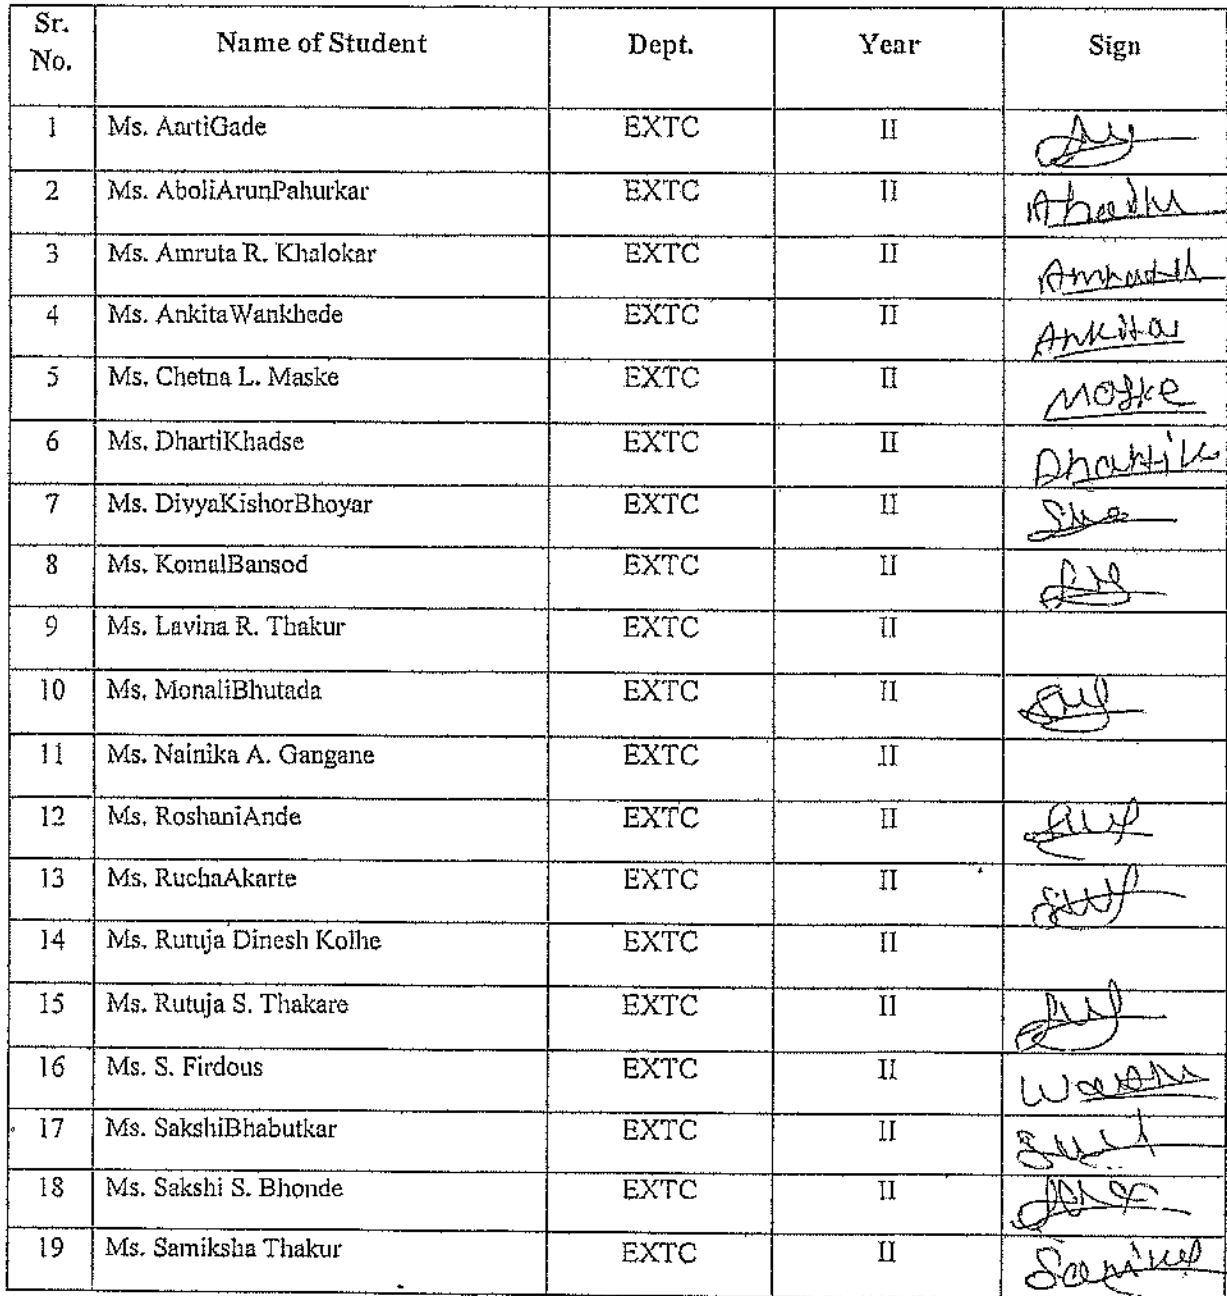 Sr. No. Name of Student Dept. Year Sign
1 Ms. AartiGade EXTC II
2 Ms. AboliArunPahurkar EXTC II
3 Ms. Amruta R. Khalokar EXTC II
4 Ms. AnkitaWankhede EXTC II Ankita
5 Ms. Chetna L. Maske EXTC II Maske
6 Ms. DhartiKhadse EXTC II
7 Ms. DivyaKishorBhoyar EXTC II
8 Ms. KomalBansod EXTC II
9 Ms. Lavina R. Thakur EXTC II
10 Ms. MonaliBhutada EXTC II
11 Ms. Nainika A. Gangane EXTC II
12 Ms. RoshaniAnde EXTC II
13 Ms. RuchaAkarte EXTC II
14 Ms. Rutuja Dinesh Kolhe EXTC II
15 Ms. Rutuja S. Thakare EXTC II
16 Ms. S. Firdous EXTC II
17 Ms. SakshiBhabutkar EXTC II
18 Ms. Sakshi S. Bhonde EXTC II
19 Ms. Samiksha Thakur EXTC II